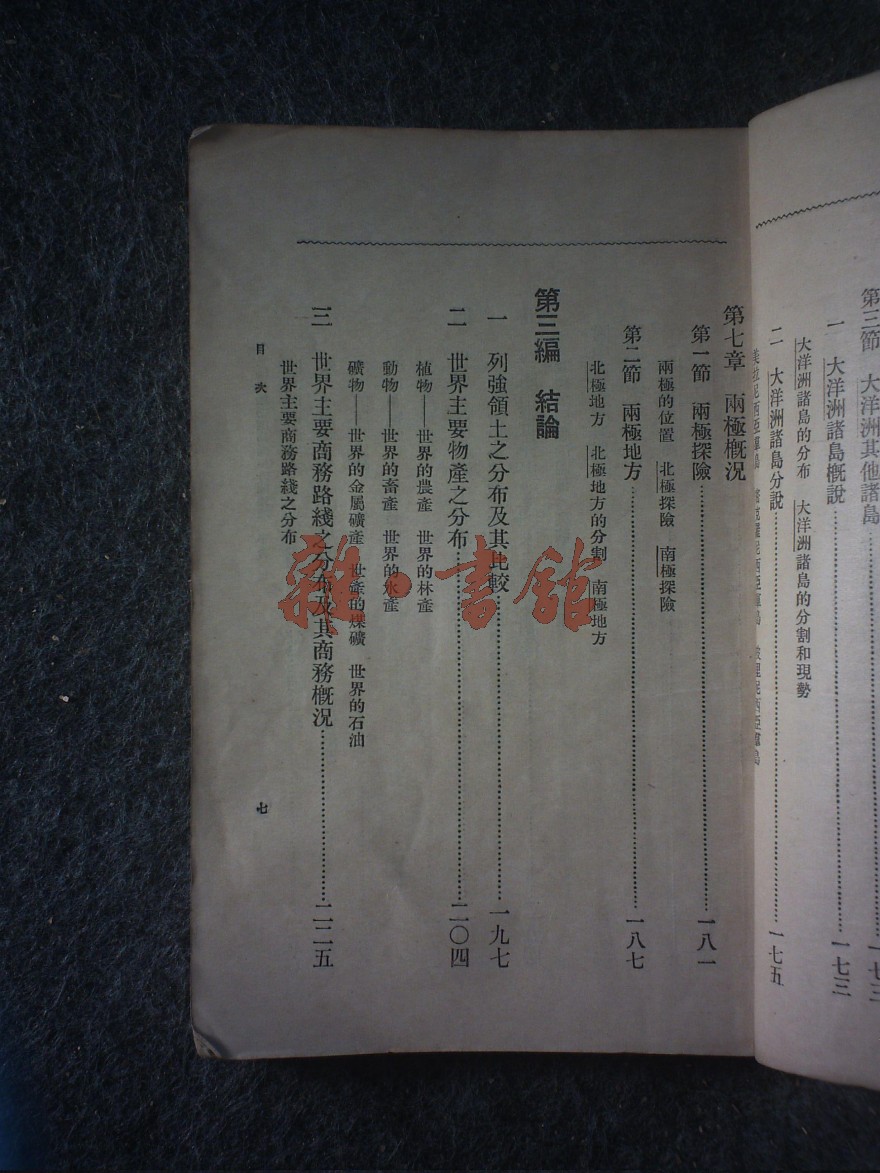 第三節　大洋洲其他諸島……一七三
一　大洋洲諸島概說……一七三
大洋洲諸島的分布　大洋洲諸島的分割和現勢
二　大洋洲諸島分說……一七五
第七章　兩極概況
第一節　兩極探險……一八一
兩極的位置　北極探險　南極探險
第二節　兩極地方……一八七
北極地方　北極地方的分割　南極地方
第三編　結論
一　列強領土之分布及其比較……一九七
二　世界主要物產之分布……二〇四
植物——世界的農產　世界的林產
動物——世界的畜產　世界的水產
礦物——世界的金屬礦產　世產的煤礦　世界的石油
三　世界主要商務路綫之分布及其商務概況……二二五
世界主要商務路綫之分布
目次
七
雜·書館